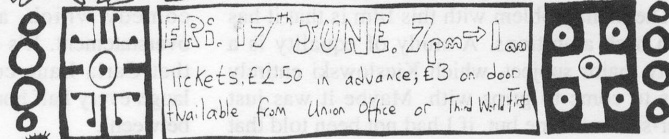 FRI. 17th JUNE. 7pm→1am
Tickets: £2·50 in advance; £3 on door
Available from Union Office or Third World First